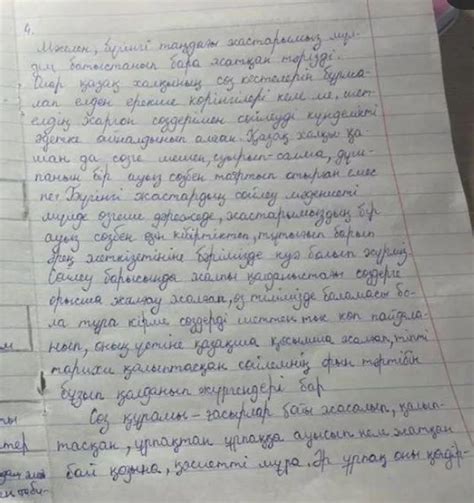 4.
Мәселен, бүгінгі таңдағы жастарымыз мүл-
дем батыстанып бара жатқан тәрізді.
Олар қазақ халқының сөз кестелерін бұрма-
лап елден ерекше көрінгілері келе ме, шет-
елдің жаргон сөздерімен сөйлеуді күнделікті
әдетке айналдырып алған. Қазақ халқы қа-
шан да сөзге шешен, суырып-салма, дұш-
панын бір ауыз сөзбен тоқтатып отырған емес
пе? Бүгінгі жастардың сөйлеу мәдениеті
мүлде өзгеше дәрежеде, жастарымыздың бір
ауыз сөзбен әзін кібіртіктеп, тұтығып барып
әрең жеткізетініне бәріміз де куә болып жүрміз.
Сөйлеу барысында жалпы қолданыстағы сөздерге
орысша жалғау жалғап, өз тілімізде баламасы бо-
ла тұра кірме сөздерді шеттен тыс көп пайдала-
нып, оның үстіне қазақша қосымша жалғап, тіпті
тарихи қалыптасқан сөйлемнің орын тәртібін
бұзып қолданып жүргендері бар
Сөз құрамы – ғасырлар бойы жасалып, қалып-
тасқан, ұрпақтан ұрпаққа ауысып келе жатқан
бай қазына, қасиетті мұра. Әр ұрпақ оны қадір-